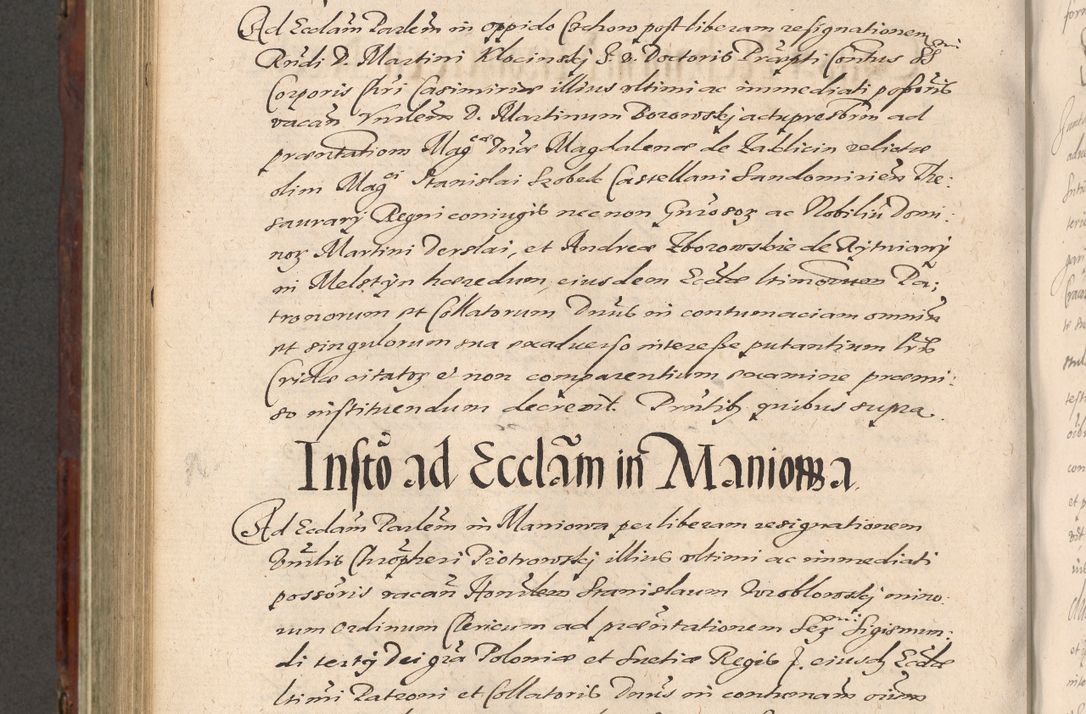 Ad Ecclãm Parlem in oppido Czchow post liberam resignationem
Rñdi D. Martini Klocinskj J. V. Doctoris Præpti Contus SSmi
Corporis Chri Casimiriæ illius vltimi ac immediati possoris
vacañ Vnlem D. Martinum Borowskj actu presbrm ad
præntationem Magcæ Dnæ Magdalenæ de Zabliczin relictæ
olim Magci Stanislai Szobek Castellani Sandomirien The:
saurarij Regni coniugis nec non Gnrosoꝝ ac Nobiliũ Domi
noꝝ Martini Derslai, et Andreæ Zborowskie de Rytwiany
in Melstÿn hæredum, eiusdem Ecclæ ltimorum Pa;
tronorum et Collatorum Dnus in contumaciam omniũ
et singulorum sua exaduerso interesse putantium lris
Cridæ citatoꝝ et non comparentium examine præmi:
so instituendum decreuit. Prntibꝫ quibus supra.
Insto ad Ecclãm in Maniowa
Ad Ecclãm Parlem in Maniowa per liberam resignationem
Vnlis Chrõpheri Piotrowskj illius vltimi ac immediati
possoris vacañ Honlem Stanislaum Wroblowskj mino:
rum Ordinum Clericum ad præntationem Serմmi Sigismun:
di tertÿ Dei gra Poloniæ et Suetiæ Regis J. eiusdꝫ Ecclæ
ltimi Patroni et Collatoris Dnus in contumam oium